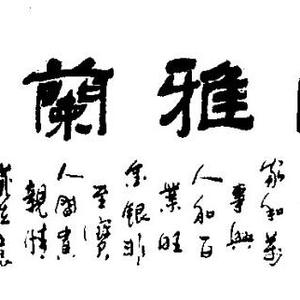 雅蘭
家和萬
事興
人和百
業旺
金銀非
至寶
人間貴
親情